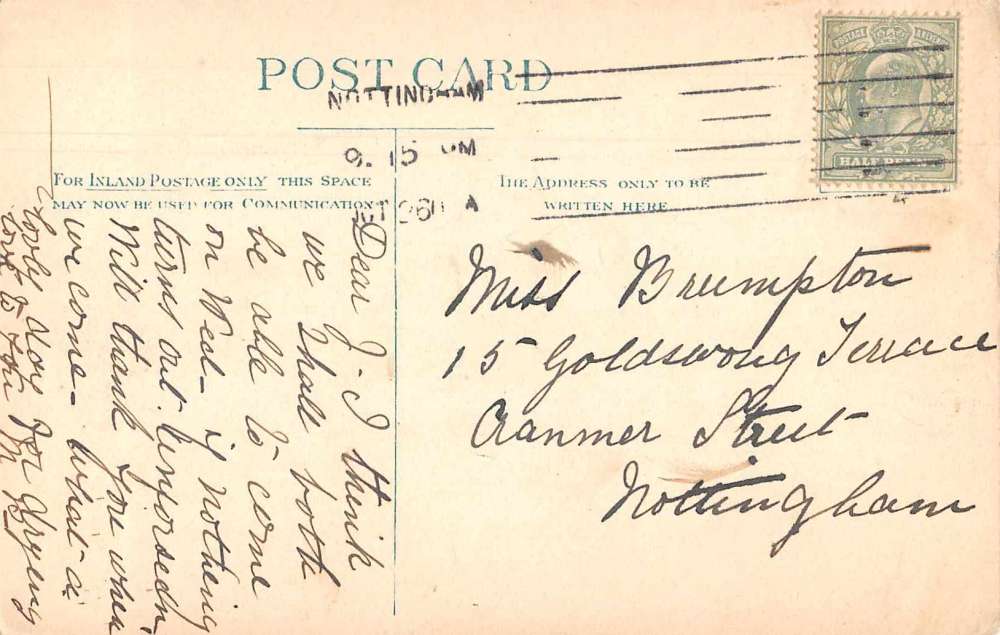 POST CARD
NOTTINGHAM
9. 15 PM
FOR INLAND POSTAGE ONLY THIS SPACE
MAY NOW BE USED FOR COMMUNICATION
THE ADDRESS ONLY TO BE
WRITTEN HERE
POSTAGE REVENUE
HALF PENNY
Miss Brumpton
15 Goldswong Terrace
Cranmer Street
Nottingham
Dear J. I think
we shall both
be able to come
on Wed - if nothing
turns out
Will thank you when
we come - What a
lovely day for
love to you M